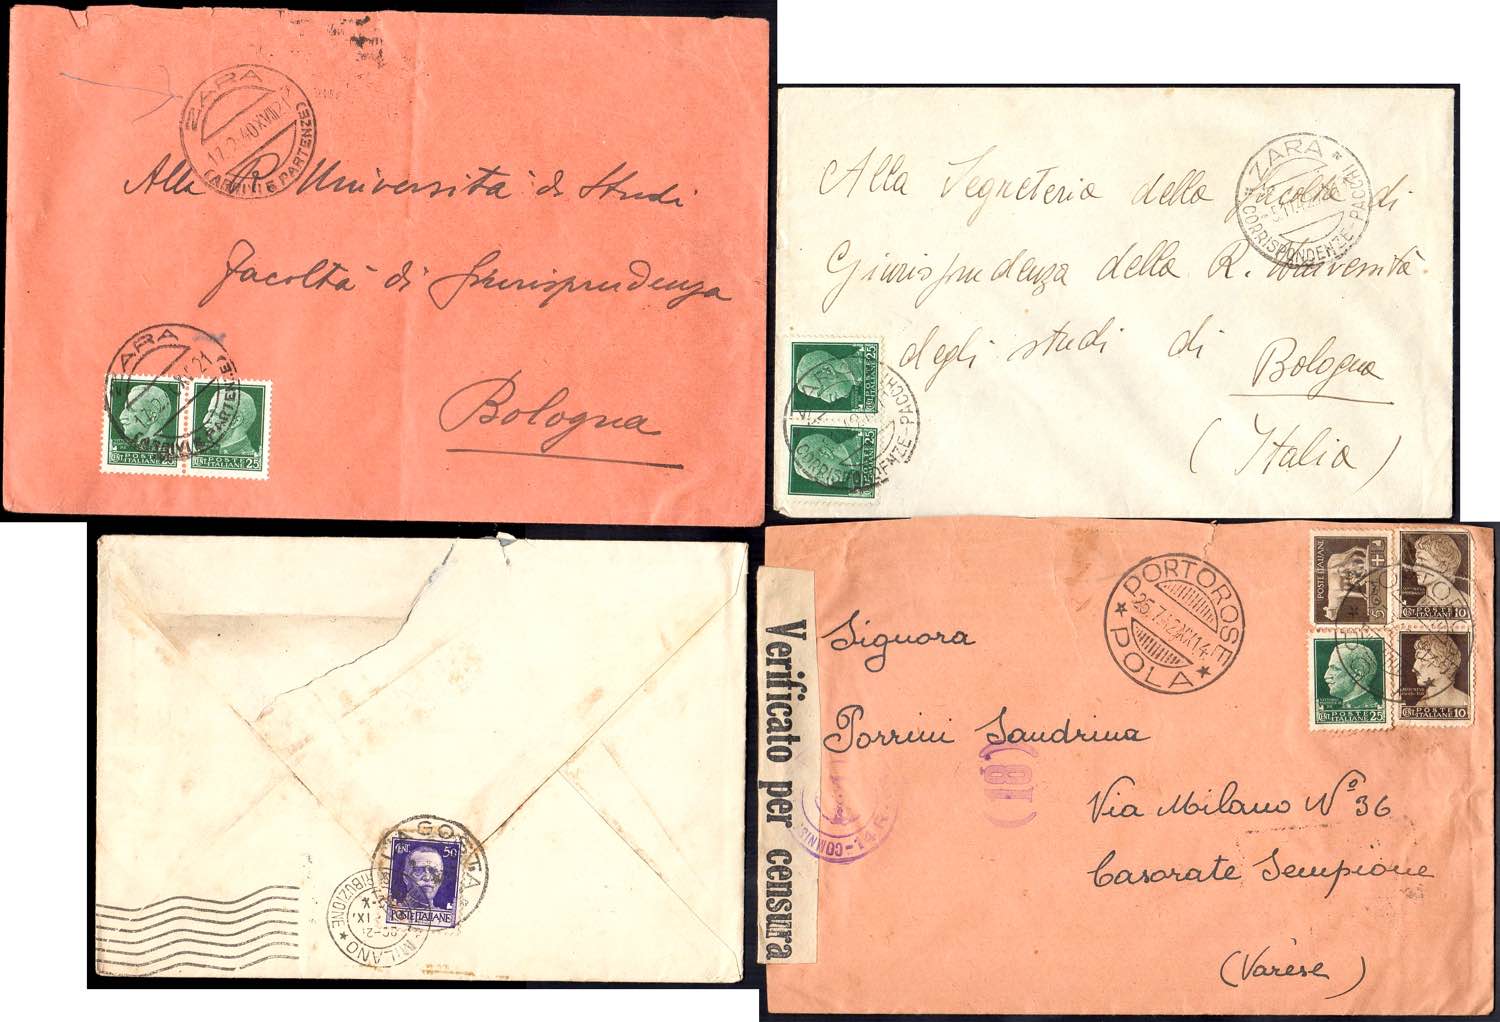 ZARA
17.2.40 XVIII 21
(ARRIVI E PARTENZE)
Alla R. Università di Studi
Facoltà di Giurisprudenza
Bologna
ZARA
21
(ARRIVI E PARTENZE)
CENT. POSTE ITALIANE 25
CENT. POSTE ITALIANE 25
ZARA
CORRISPONDENZE-PACCHI
Alla Segreteria della Facoltà di
Giurisprudenza della R. Università
degli studi di Bologna
(Italia)
POSTE ITALIANE 25
POSTE ITALIANE 25
CORRISPONDENZE-PACCHI
LAGOSTA
CENT. 50
POSTE ITALIANE
MILANO
DISTRIBUZIONE
Verificato per censura
PORTOROSE
25.7.42 XX 14
POLA
POSTE ITALIANE
CENT. POSTE ITALIANE 10
CENT. POSTE ITALIANE 25
CENT. POSTE ITALIANE 10
Signora
Porrini Sandrina
(18)
Via Milano Nº 36
Casorate Sempione
(Varese)